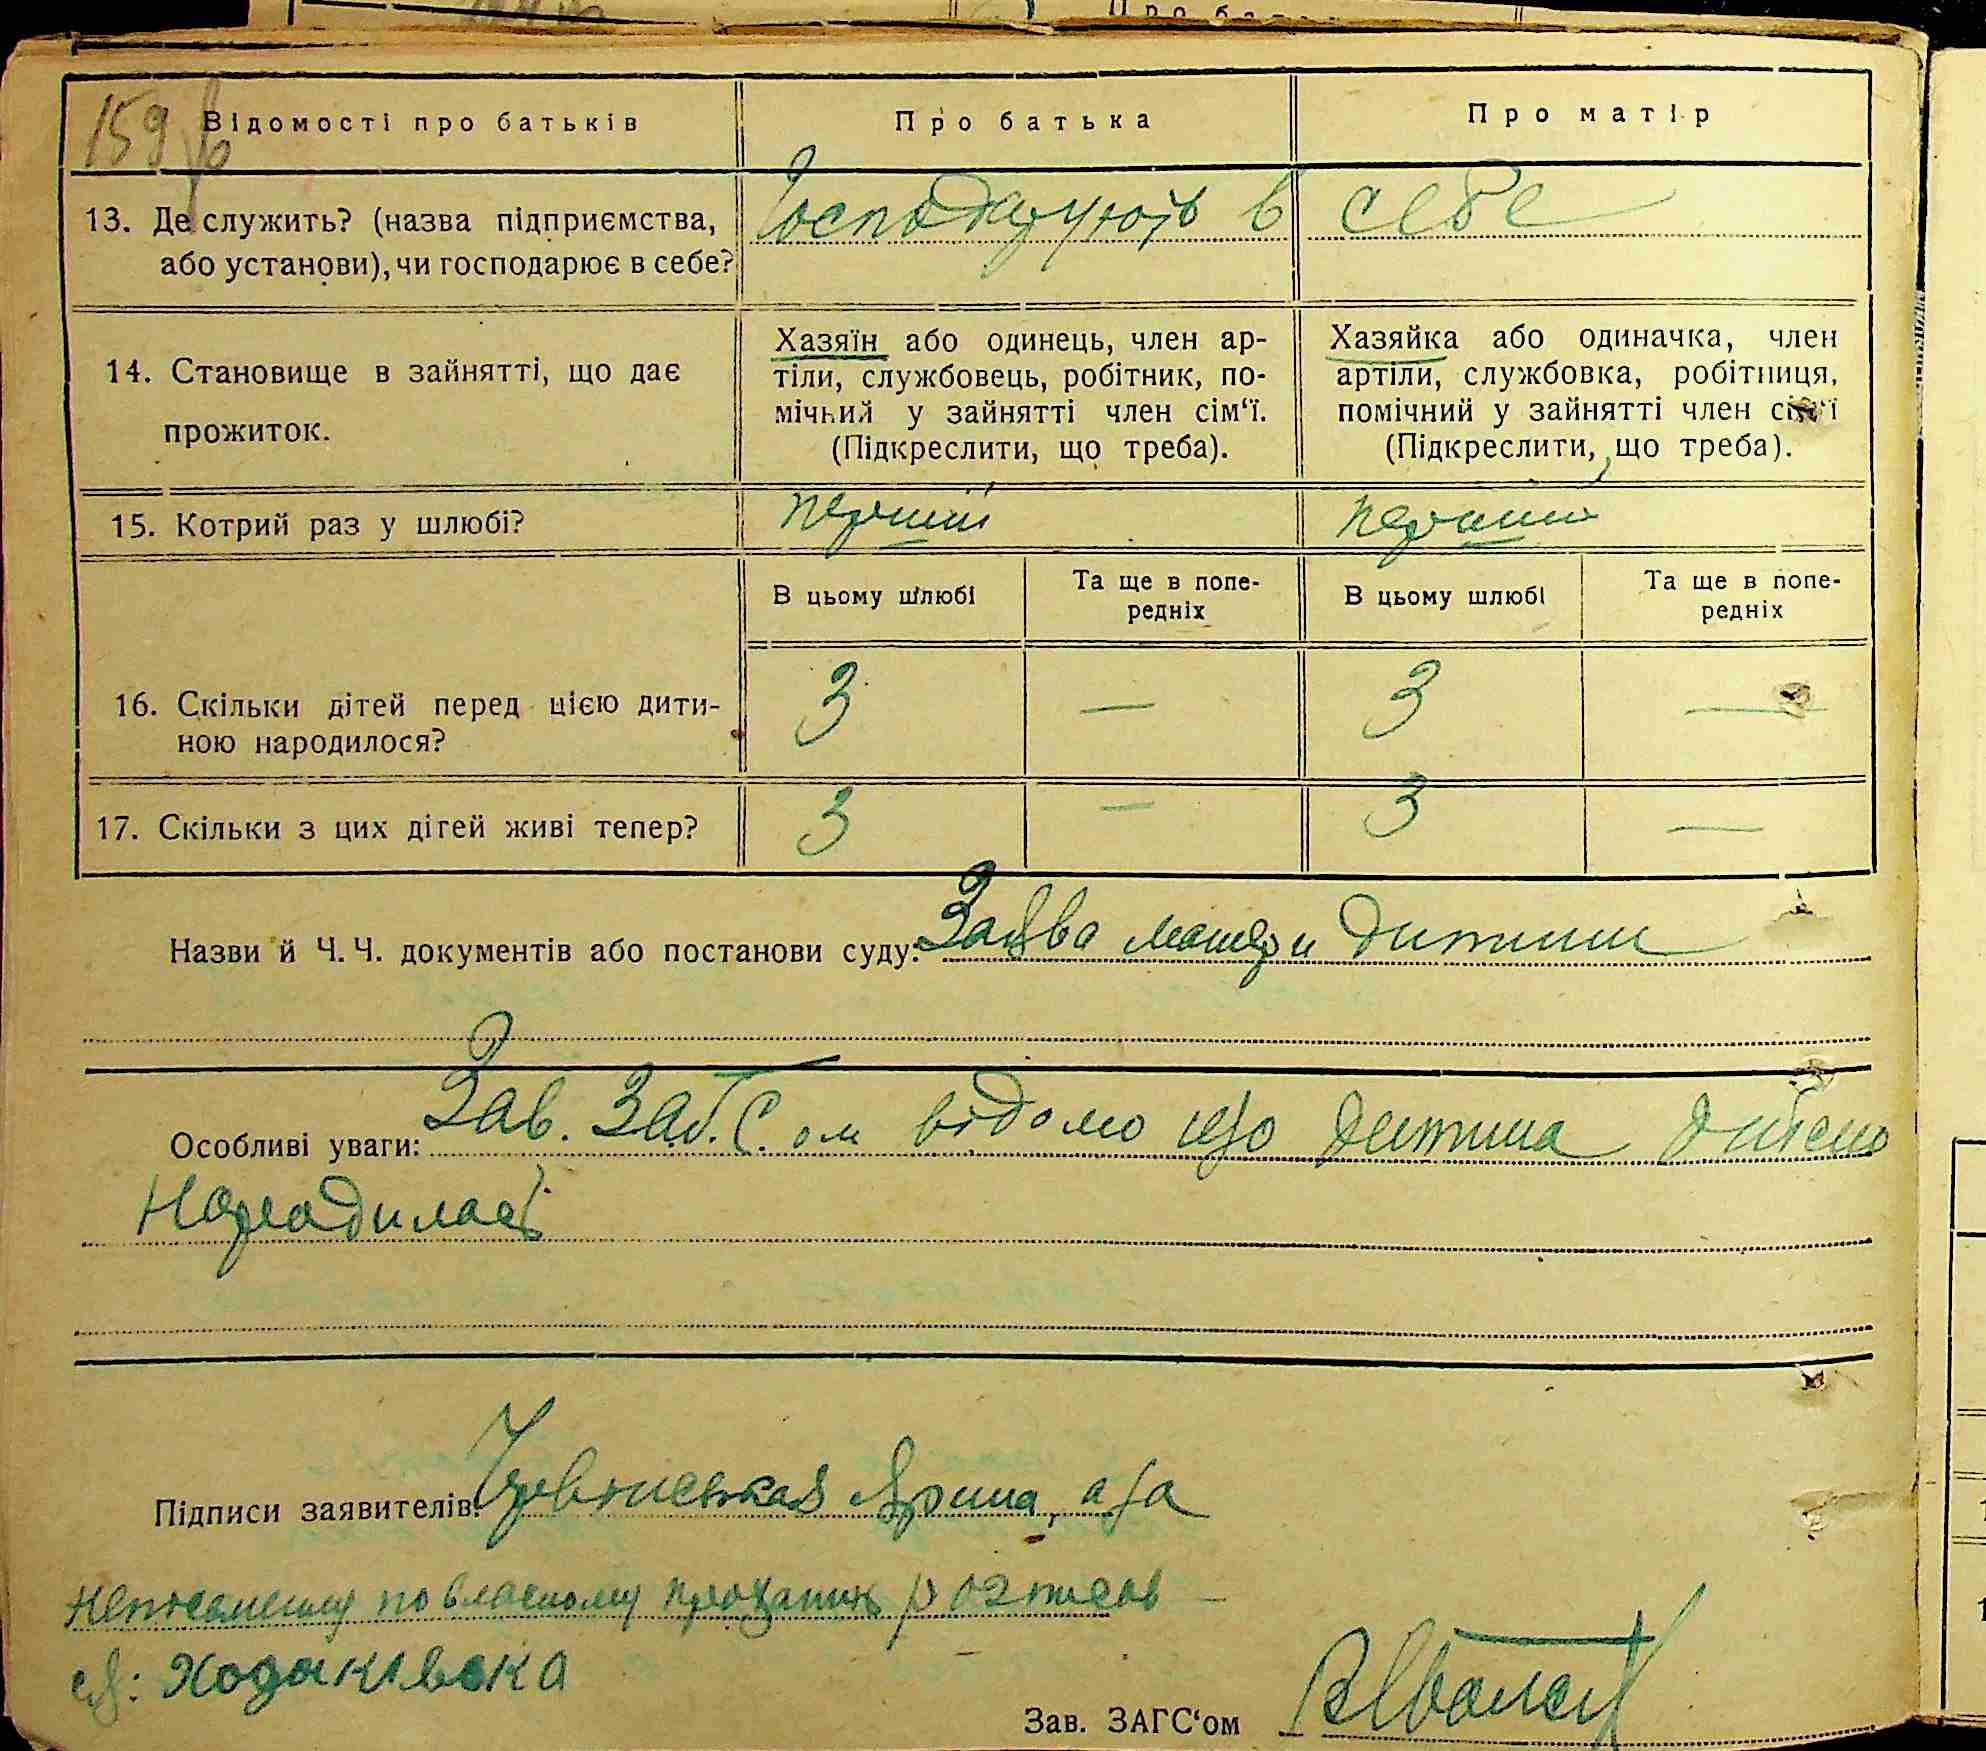 Про батька
159
Відомості про батьків
Про батька
Про матір
13. Де служить? (назва підприємства,
або установи), чи господарює в себе?
Господарують в себе
14. Становище в зайнятті, що дає
прожиток.
Хазяїн або одинець, член ар-
тіли, службовець, робітник, по-
мічний у зайнятті член сім‘ї.
(Підкреслити, що треба).
Хазяйка або одиначка, член
артіли, службовка, робітниця,
помічний у зайнятті член сім‘ї
(Підкреслити, що треба).
15. Котрий раз у шлюбі?
перший
перший
В цьому шлюбі
Та ще в попе-
редніх
В цьому шлюбі
Та ще в попе-
редніх
16. Скільки дітей перед цією дити-
ною народилося?
3 — 3 —
17. Скільки з цих дітей живі тепер?
3 — 3 —
Назви й Ч. Ч. документів або постанови суду: Заява матери дитини
Особливі уваги: Зав. ЗАГ.С.ом відомо що дитина дійсно
Народилась
Підписи заявителів: Ярина, а за
неписьменну по власному проханню розписав
ся: Ходаківська
Зав. ЗАГС‘ом